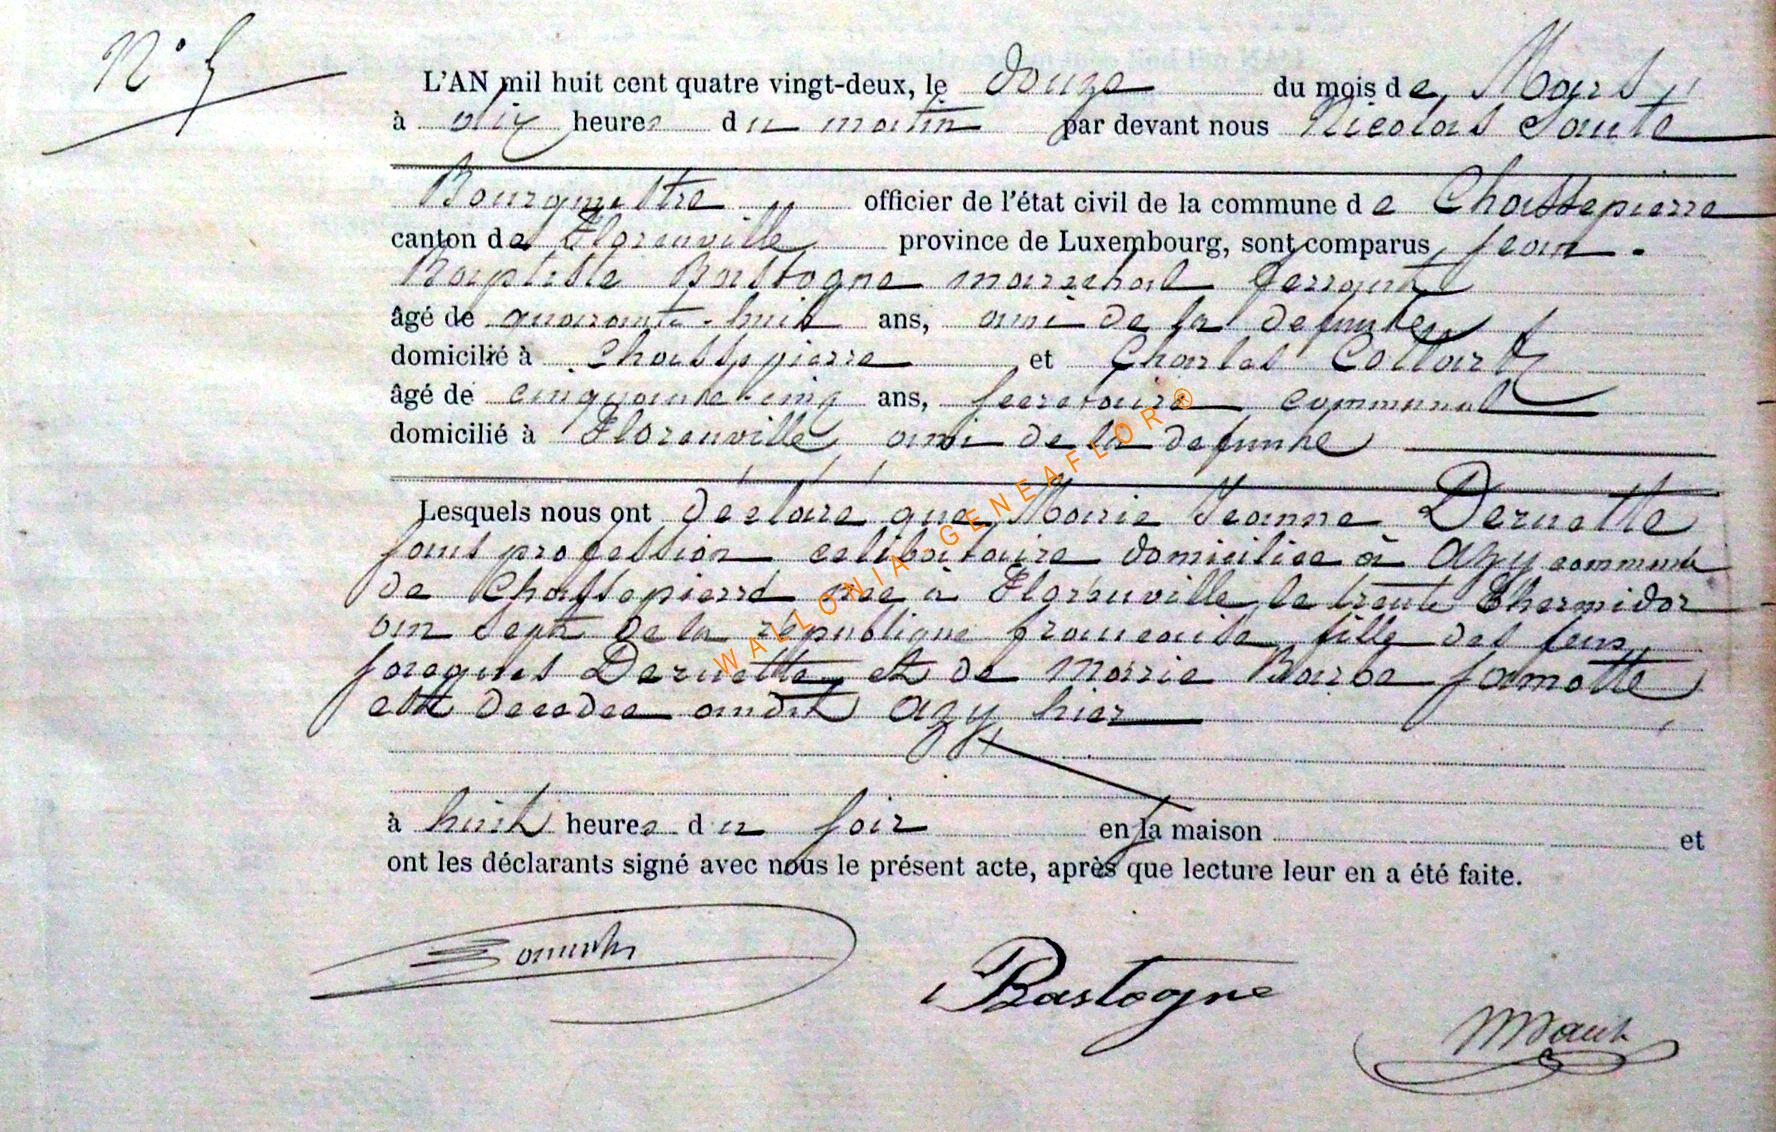 N° 5
L'AN mil huit cent quatre vingt-deux, le douze du mois de Mars
à dix heures du matin par devant nous Nicolas Sauté
Bourgmestre officier de l'état civil de la commune de Chassepierre
canton de Florenville province de Luxembourg, sont comparus Jean-
Baptiste Bastogne marrechal ferrant
âgé de quarante-huit ans, ami de la defunte
domicilié à Chassepierre et Charles Collart
âgé de cinquante-cinq ans, secretaire communal
domicilié à Florenville, ami de la defunte
Lesquels nous ont déclaré que Marie Jeanne Deruette
sans profession celibataire domiciliee à Azy commune
de Chassepierre née à Florenville le trente Thermidor
an sept de la république francaise fille des feus
Jacques Deruette et de Marie Barbe Jamotte
est decedee audit Azy hier
à huit heures du soir en la maison et
ont les déclarants signé avec nous le présent acte, après que lecture leur en a été faite.
Bastogne
WALLONIA GENEAFLOR ®